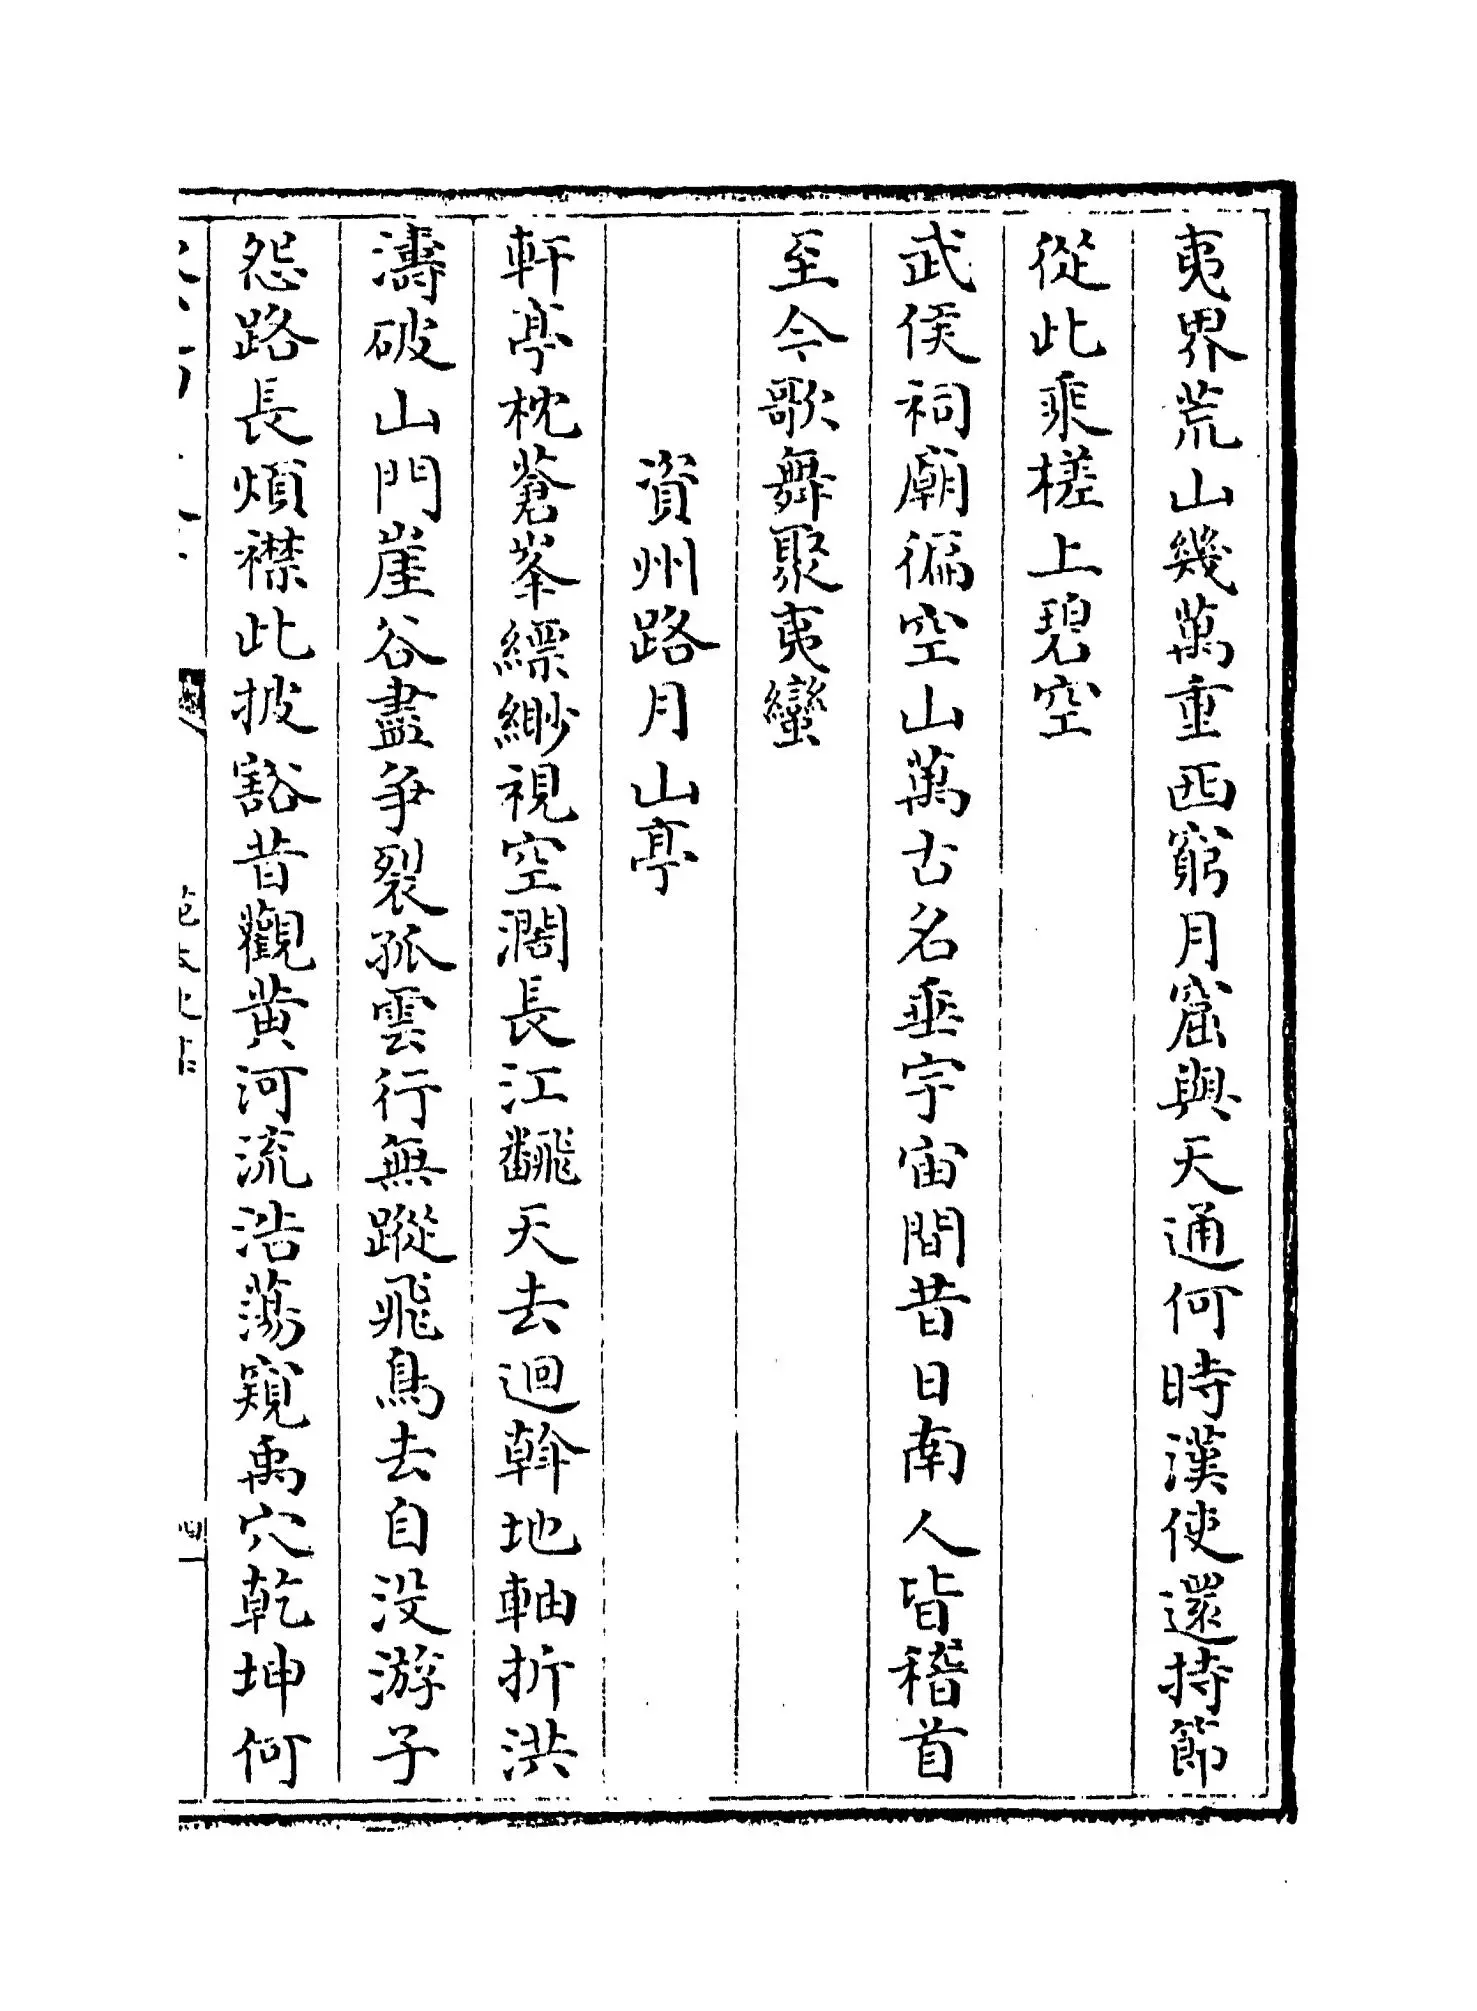 夷界荒山幾萬重西窮月窟與天通何時漢使還持節
從此乘槎上碧空
武侯祠廟徧空山萬古名垂宇宙間昔日南人皆稽首
至今歌舞聚夷蠻
資州路月山亭
軒亭枕蒼峯縹緲視空濶長江飜天去迴斡地軸折洪
濤破山門崖谷盡争裂孤雲行無蹤飛鳥去自没游子
怨路長煩襟此披豁昔觀黄河流浩蕩窺禹穴乾坤何